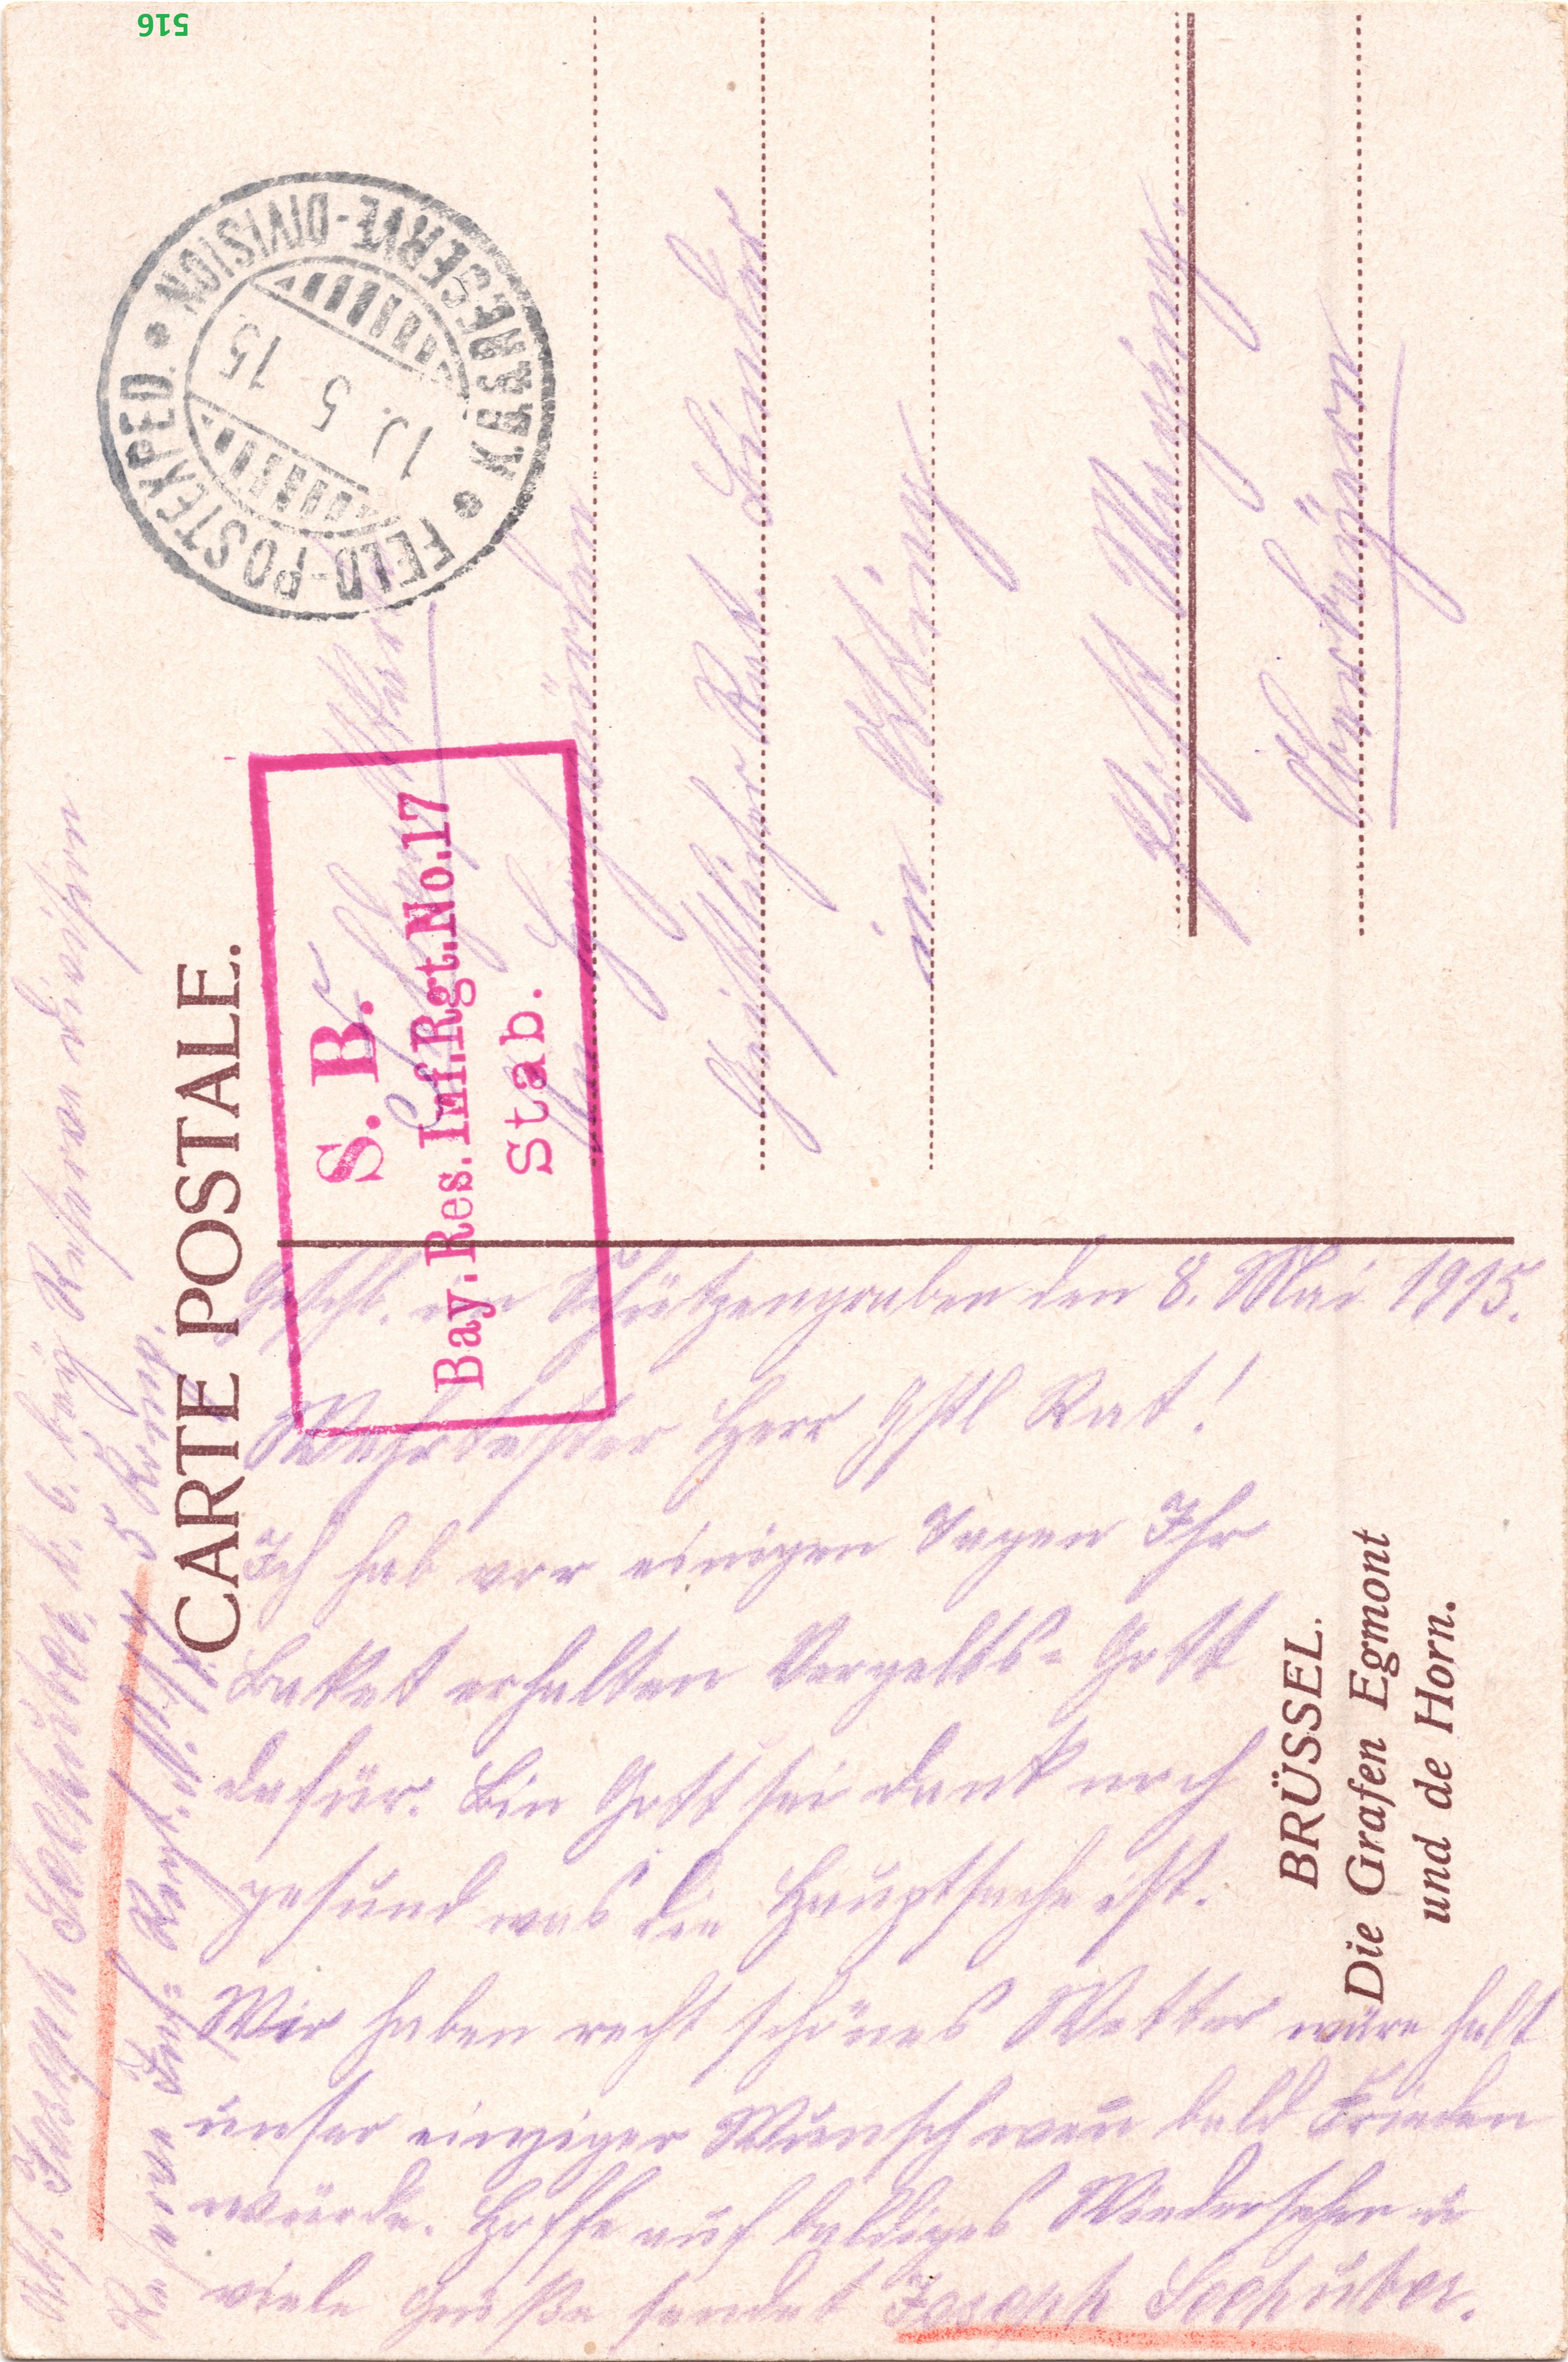 516
Abs. Joseph Seehuber, k. 6. bay Reserve Division
Reserve Inf: Regt. N. 17. 5 Komp.
CARTE POSTALE.
FELD-POSTEXPED. * K.B. RESERVE-DIVISION *
5 15
S. B.
Bay. Res. Inf. Rgt. No. 17
Stab.
Geschl. im Schützengraben den 8. Mai 1915.
Wehrtester Herr gstl Rat!
Ich hab vor einigen Tagen Ihr
Paket erhalten Vergelts-Gott
dafür. Bin Gott sei dank noch
gesund was die Hauptsache ist.
Wir haben recht schönes Wetter wäre halt
unser einziger Wunsch wen bald Frieden
würde. Hoffe auf baldiges Wiedersehen u
viele Grüße sendet Joseph Seehuber.
Hochwürden
Geistlicher Rat
in
Post
Oberbayern
BRÜSSEL.
Die Grafen Egmont
und de Horn.